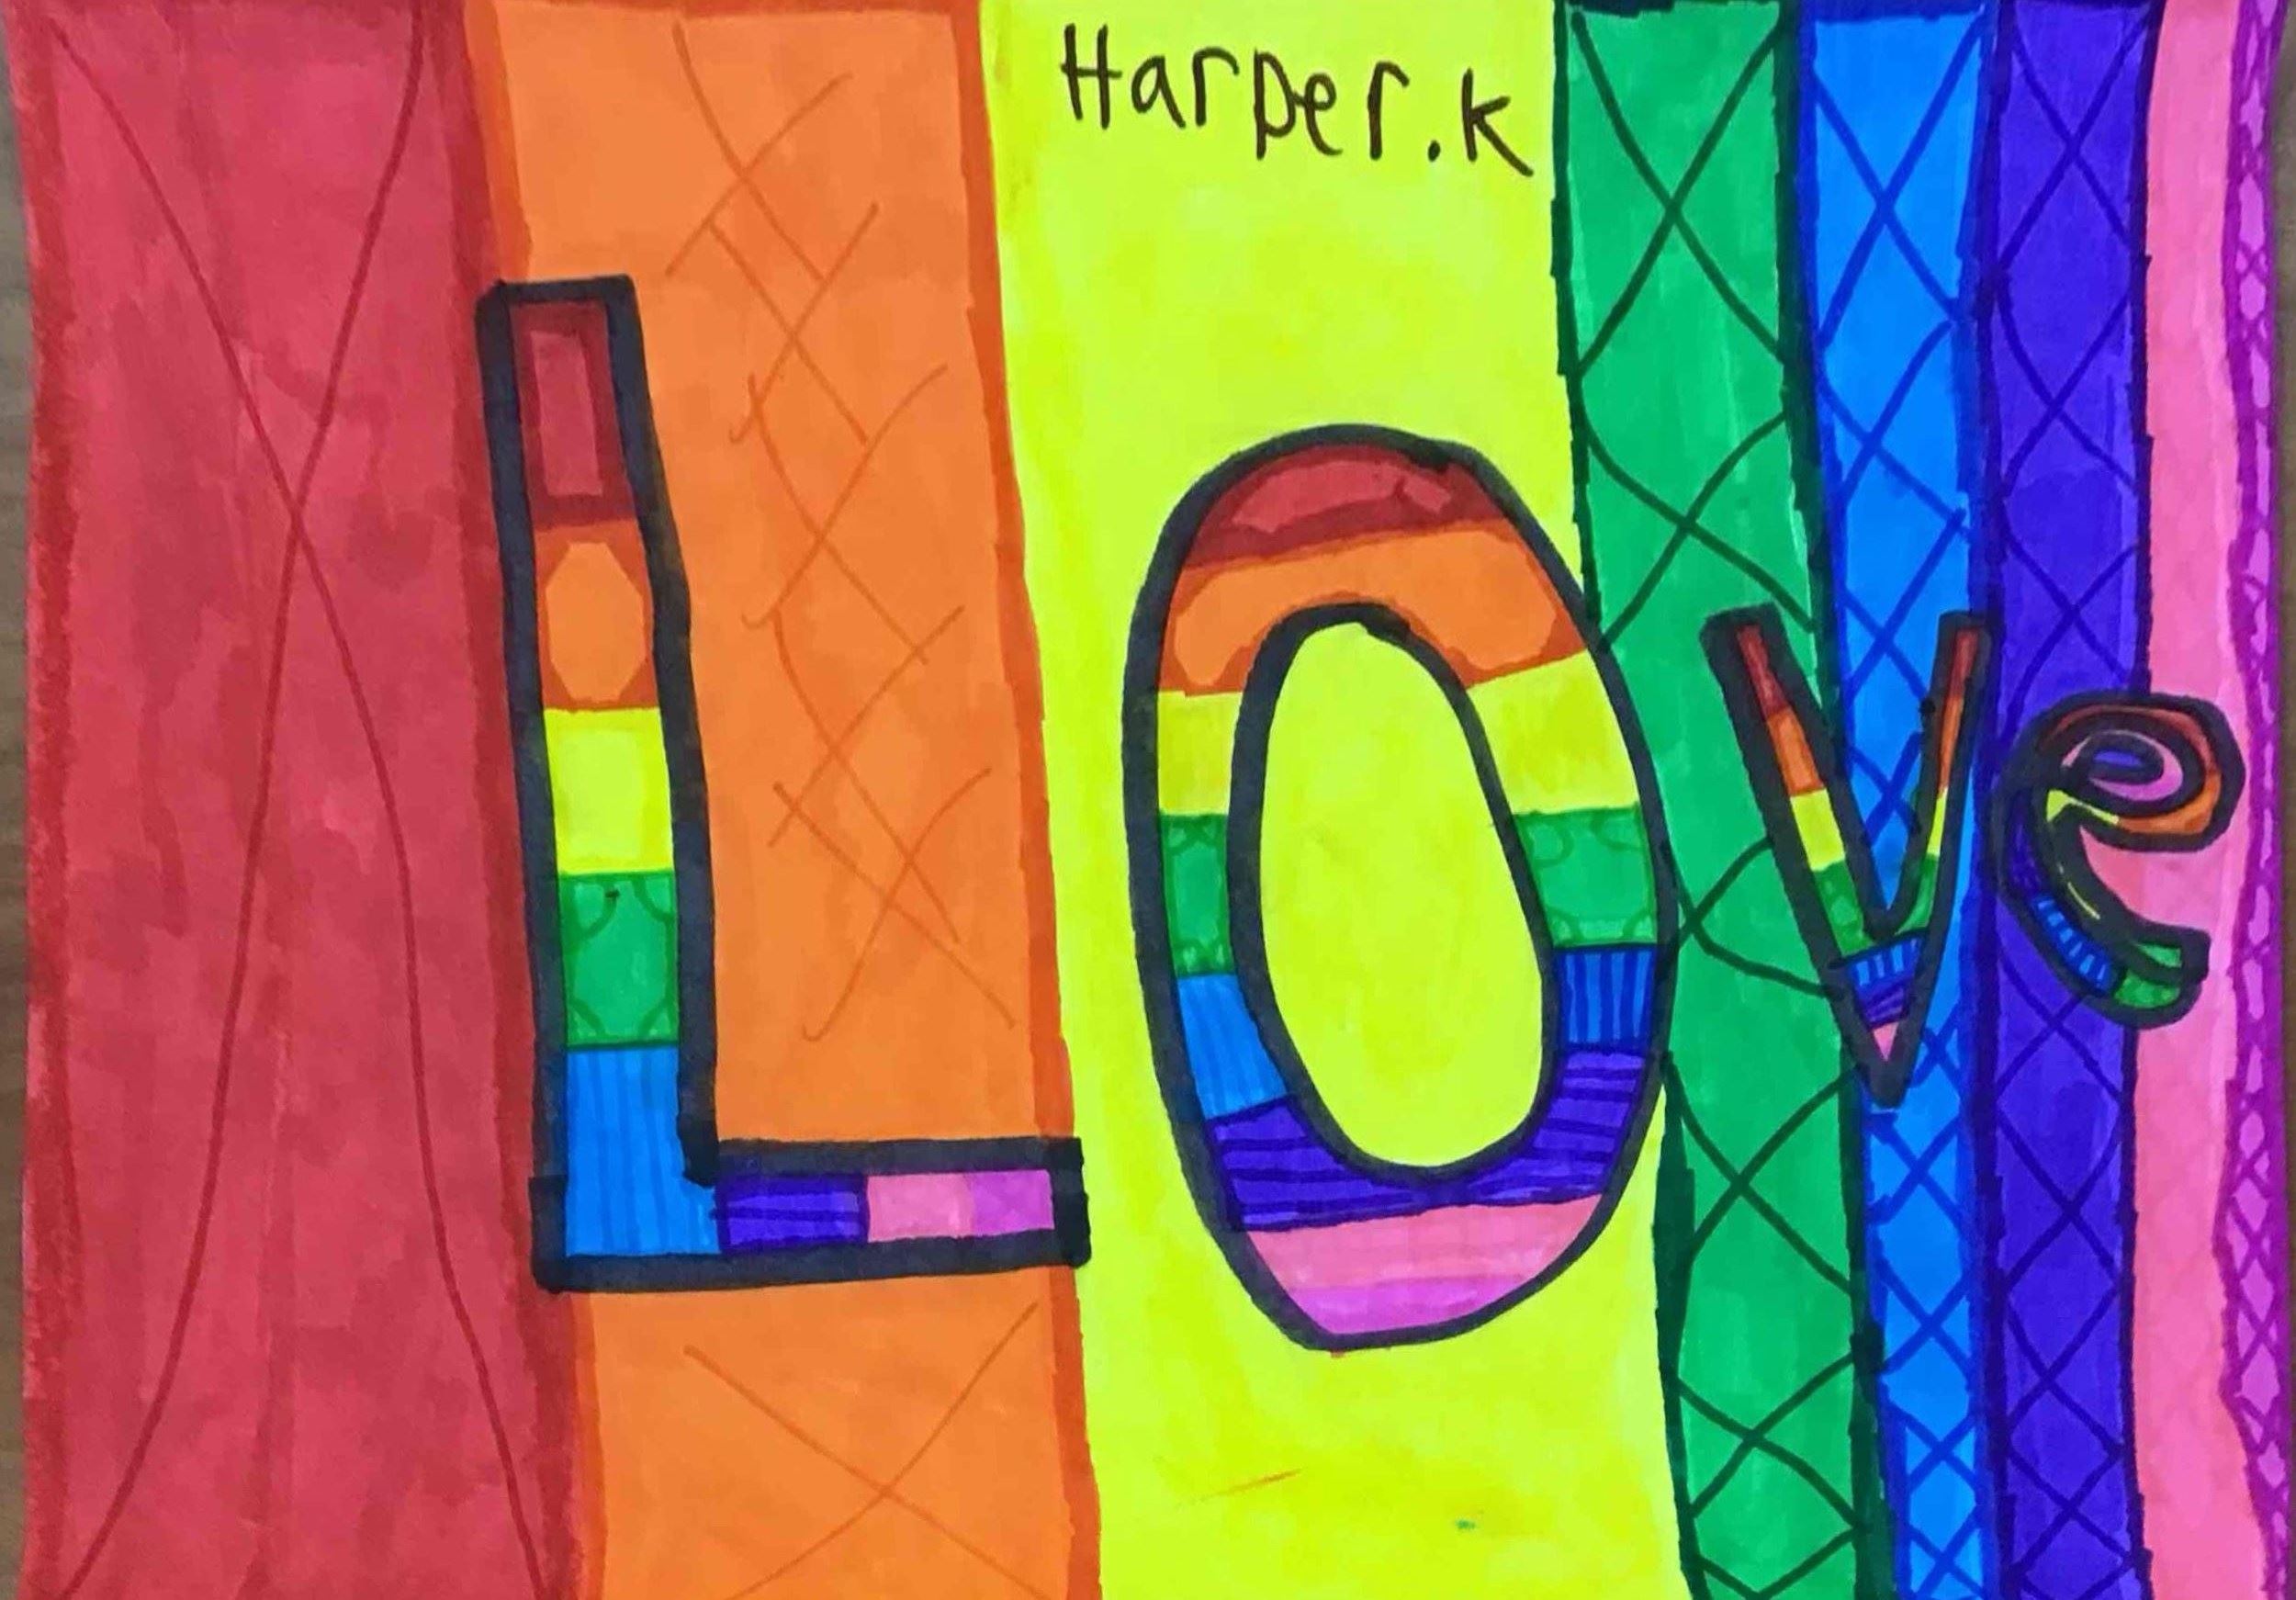 Harper.k
LOve